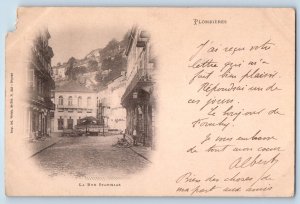 PLOMBIÈRES
J'ai reçu votre
lettre qui m'a
fait bien plaisir
Répondrai un
de ces jours.
Le bonjour de
Je vous embrasse
de tout mon cœur
Albert
Bien des choses de
ma part aux amis
LA RUE STANISLAS